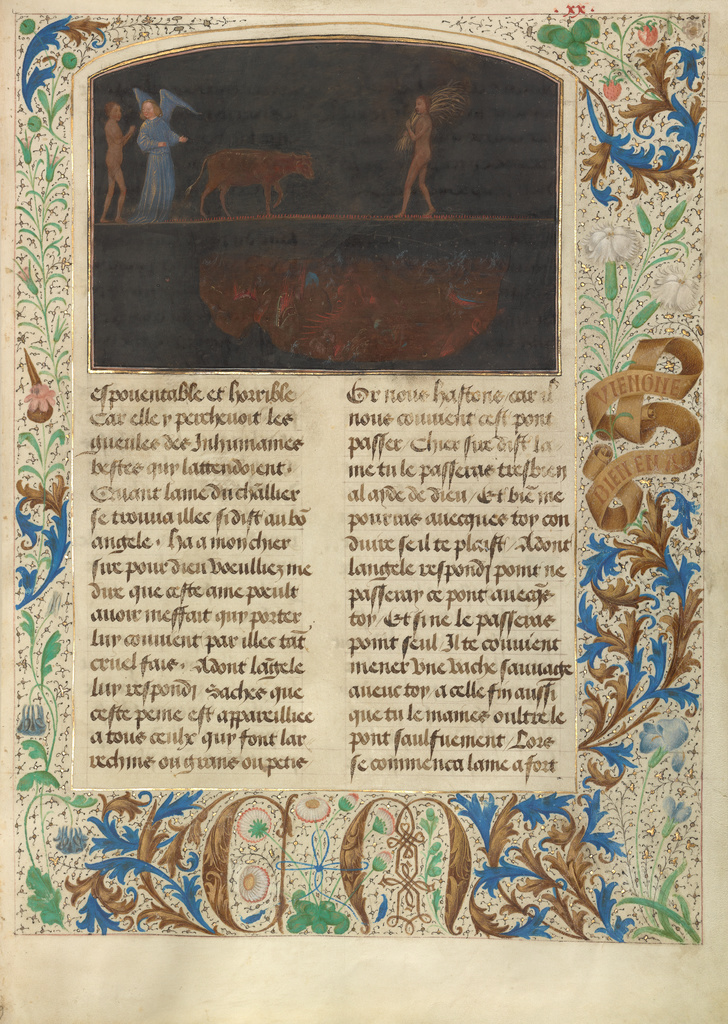 xx
espouentable et horrible
Car elle y percheuoit les
gueules des Inhumaines
bestes quy lattendoyent.
Quant lame du chlīer
se trouua illec si dist au bō
angele. Ha a mon chier
sire pour dieu voeulliez me
dire que ceste ame poeult
auoir meffait quy porter
luy conuient par illec tāt
cruel fais. Adont lāgele
luy respondi Saches que
ceste peine est appareilliee
a tous ceulx quy font lar
rechins ou grans ou petis
Or nous hastons car il
nous conuient cest pont
passer / Chier sire dist la
me tu le passeras tresbien
al ayde de dieu / Et biē me
pourras auecques toy con
duire se il te plaist / Adont
langele respondi point ne
passeray ce pont auecq̄s
toy / Et si ne le passeras
point seul Il te conuient
mener vne vache sauuage
auenc toy a celle fin aussi
que tu le maines oultre le
pont saulfuement / Lors
se commenca lame a fort
VIENGNE
BIEN EN
C M